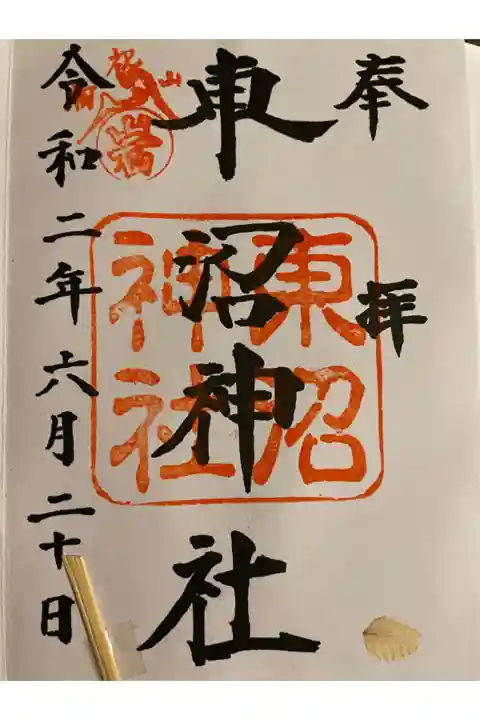 奉拝
東沼神社
東沼
神社
令和二年六月二十日